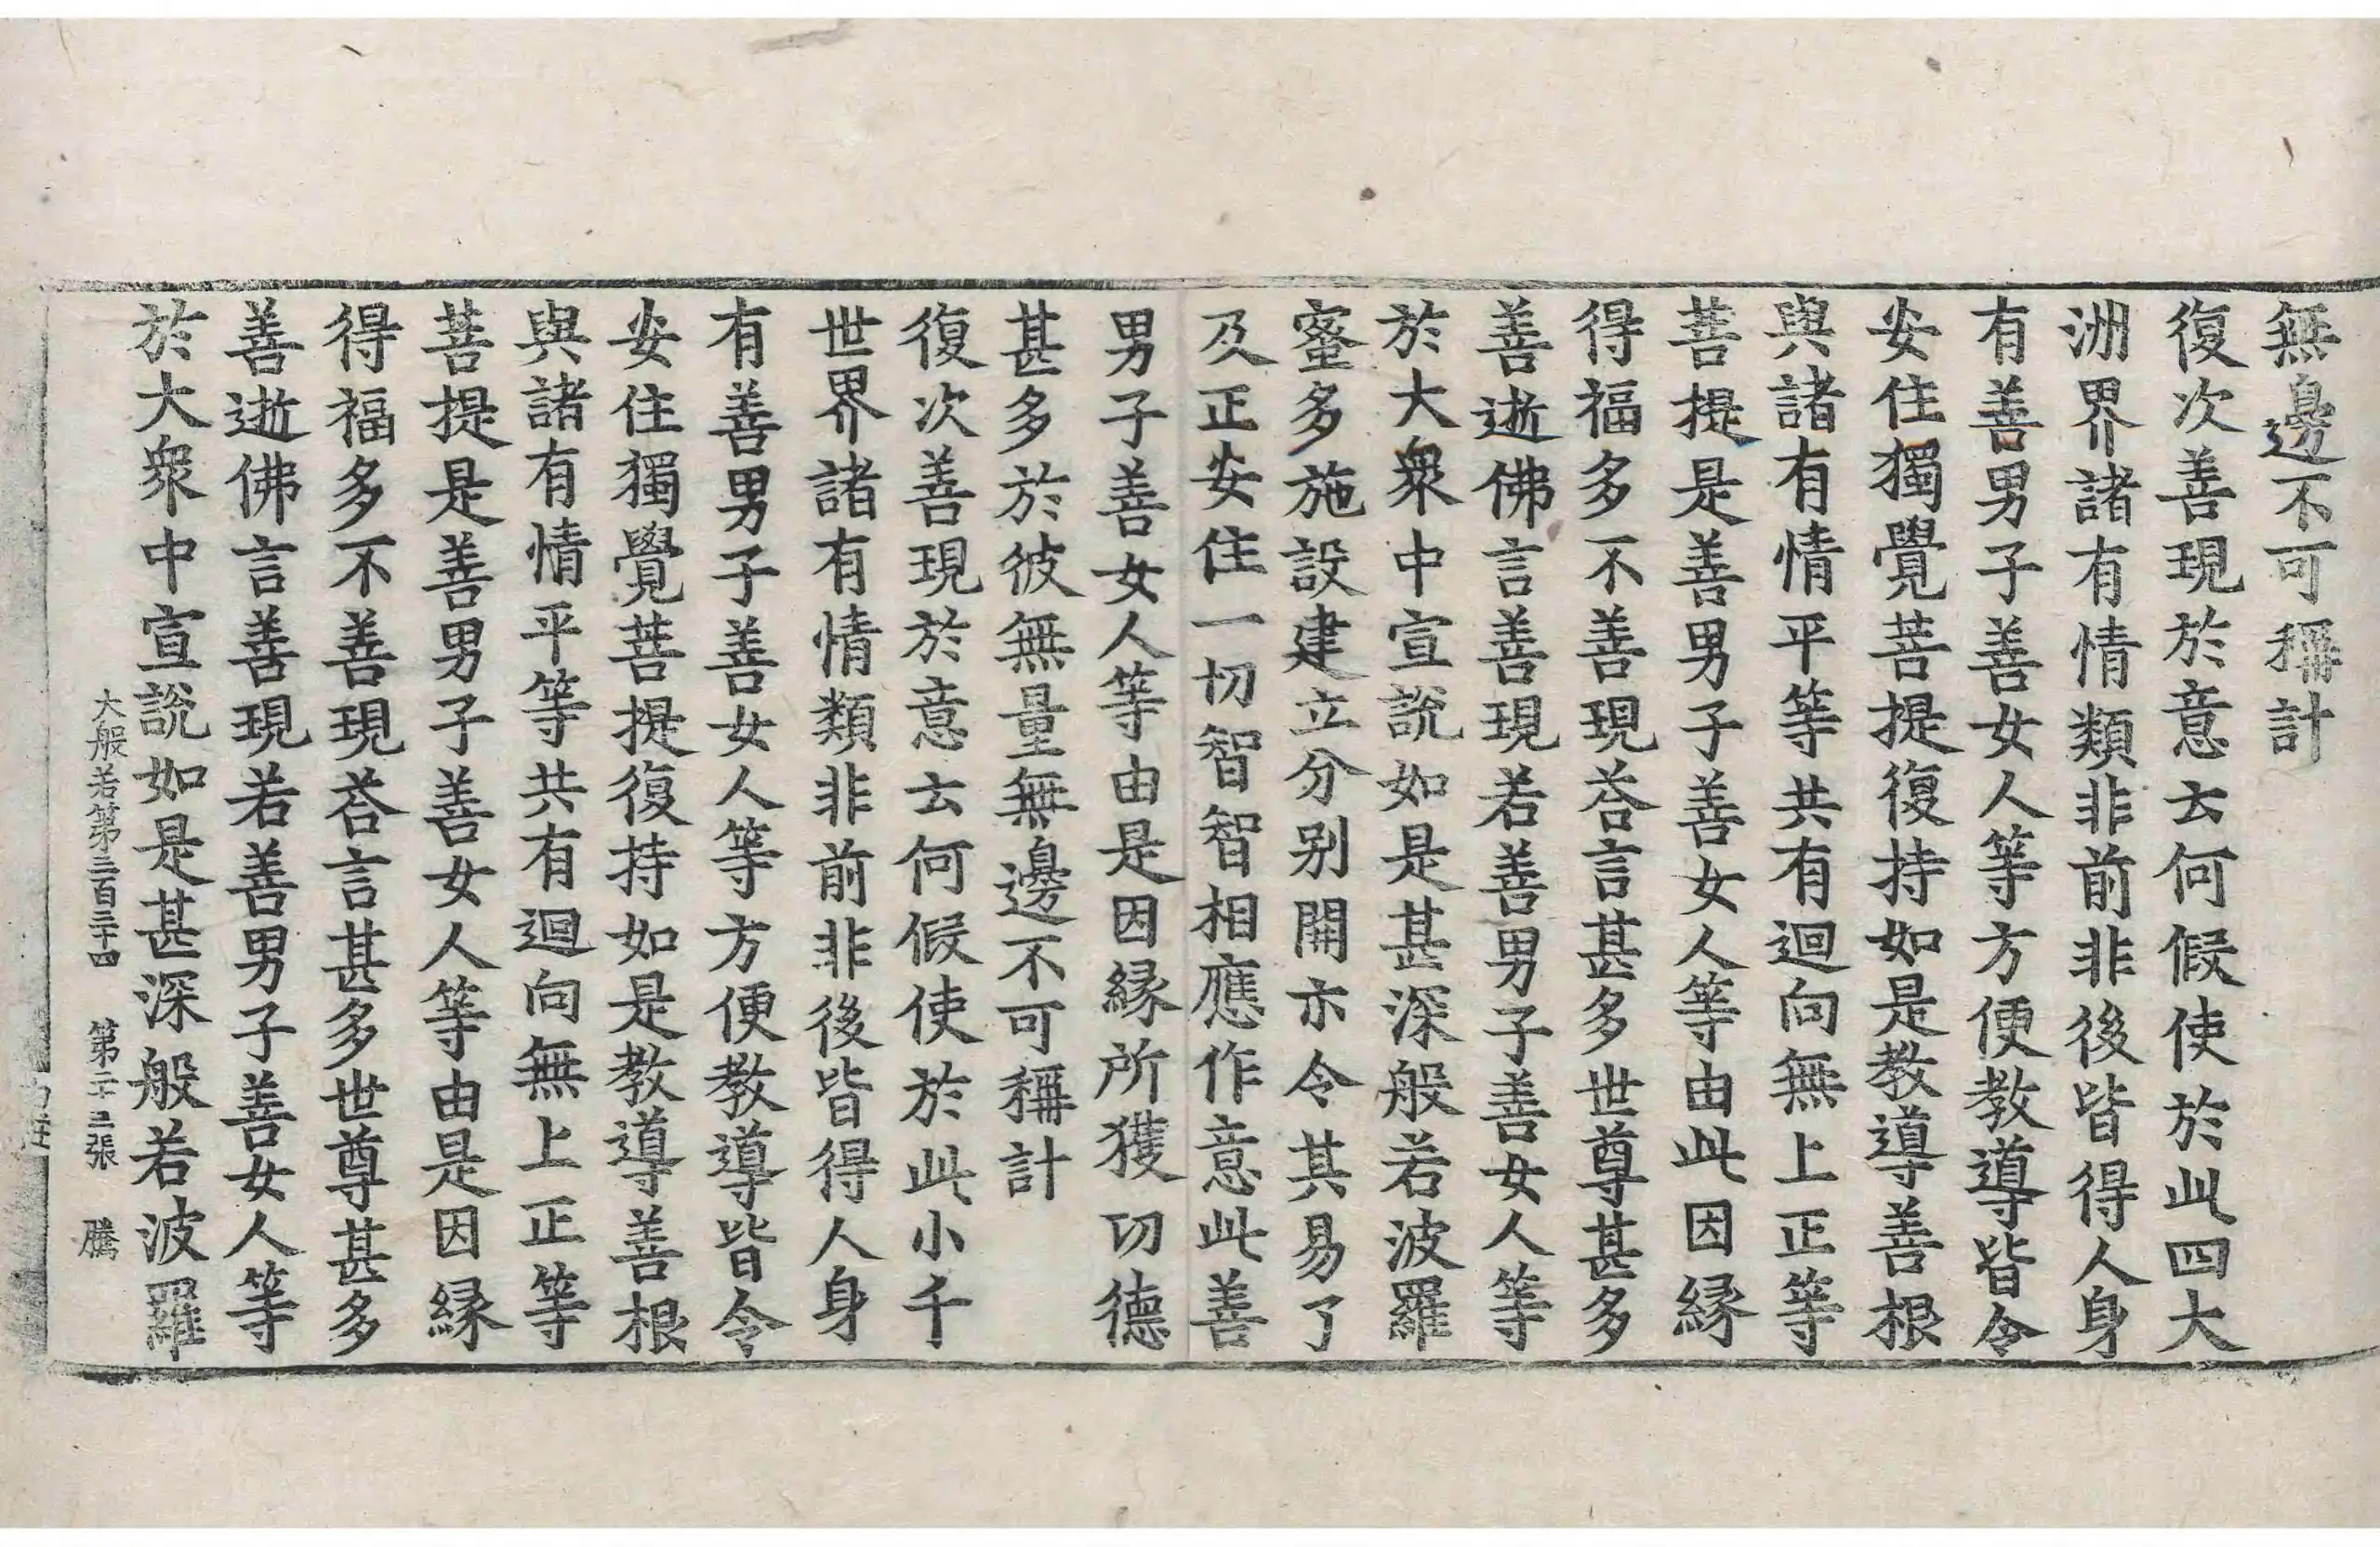 無邊不可稱計
復次善現於意云何假使於此四大
洲界諸有情類非前非後皆得人身
有善男子善女人等方便教導皆令
安住獨覺菩提復持如是教導善根
與諸有情平等共有迴向無上正等
菩提是善男子善女人等由此因緣
得福多不善現荅言甚多世尊甚多
善逝佛言善現若善男子善女人等
於大衆中宣說如是甚深般若波羅
蜜多施設建立分别開示令其易了
及正安住一切智智相應作意此善
男子善女人等由是因緣所獲功德
甚多於彼無量無邊不可稱計
復次善現於意云何假使於此小千
世界諸有情類非前非後皆得人身
有善男子善女人等方便教導皆令
安住獨覺菩提復持如是教導善根
與諸有情平等共有迴向無上正等
菩提是善男子善女人等由是因緣
得福多不善現荅言甚多世尊甚多
善逝佛言善現若善男子善女人等
於大衆中宣說如是甚深般若波羅
大般若第三百三十四 第二十三張 騰